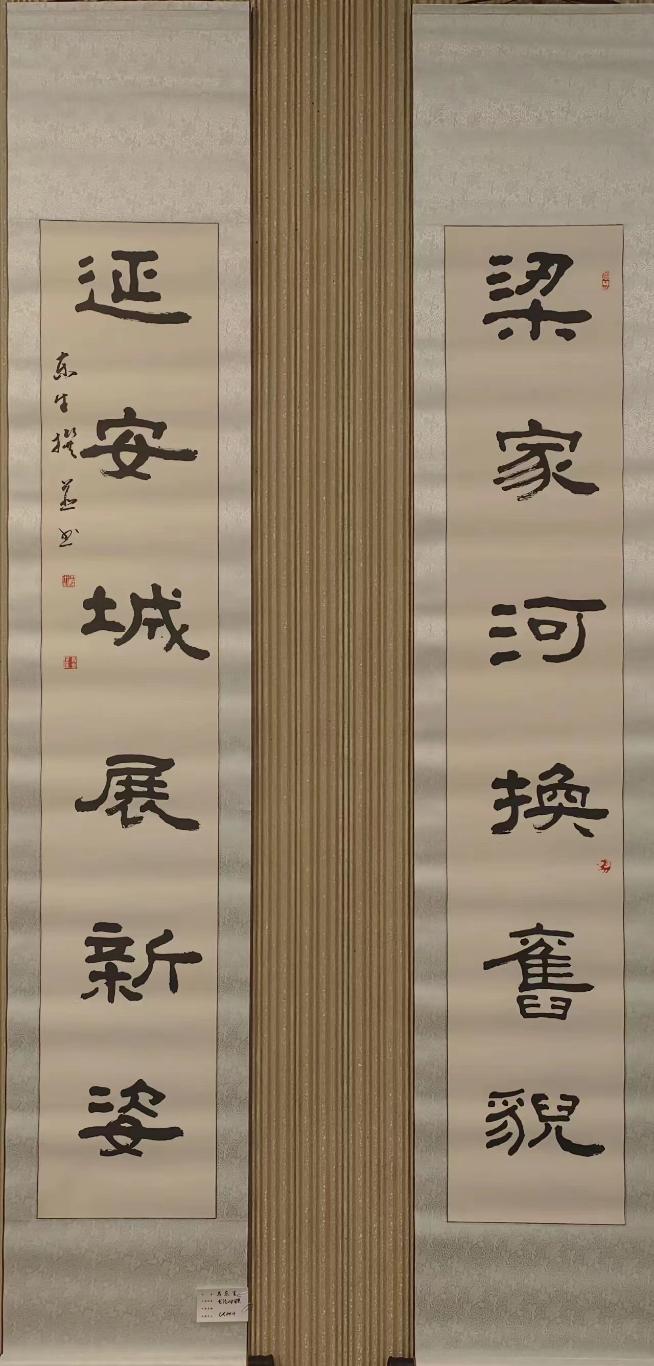 梁家河換舊貌
延安城展新姿
东生撰并书